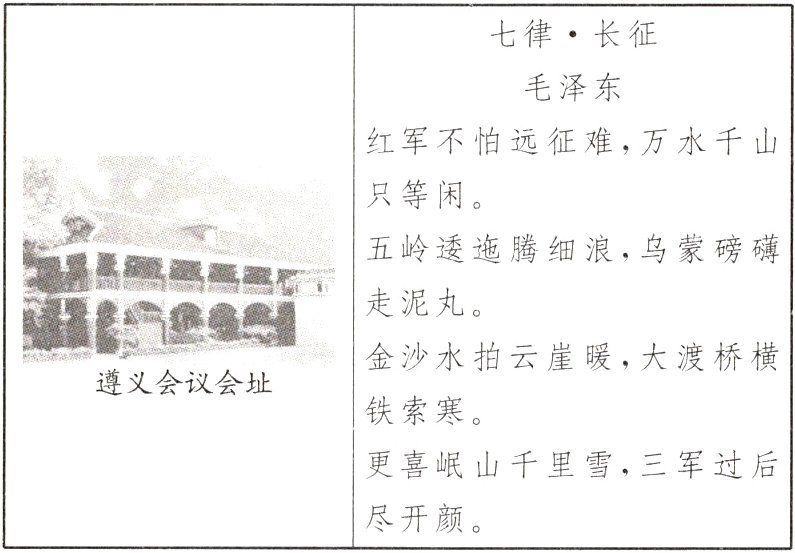 遵义会议会址
七律·长征
毛泽东
红军不怕远征难,万水千山
只等闲。
五岭逶迤腾细浪,乌蒙磅礴
走泥丸。
金沙水拍云崖暖,大渡桥横
铁索寒。
更喜岷山千里雪,三军过后
尽开颜。